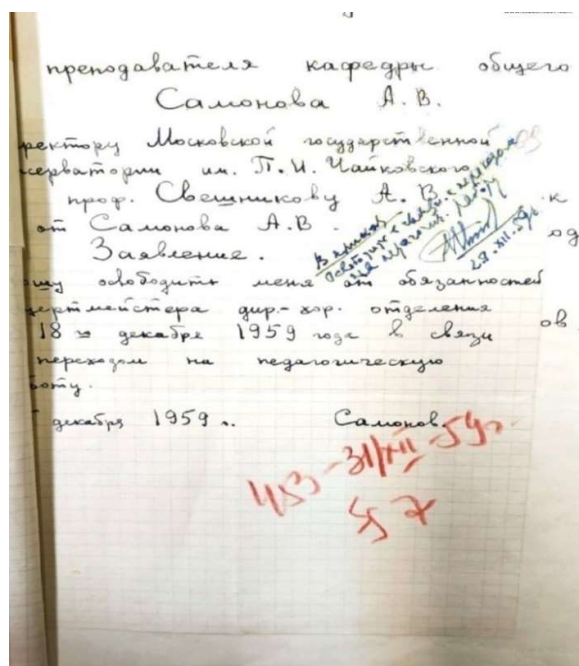 преподавателя кафедры общего
Самонова А. В.
ректору Московской государственной
серватории им. П. И. Чайковского,
проф. Свешникову А. В.
к
от Самонова А. В.
Заявление.
од
В приказ
Освободить в связи с переходом
на педагогич. работу
29.XII.59г
шу освободить меня от обязанностей
цертмейстера дир.-хор. отделения
18 декабря 1959 года в связи
ов.
переходом на педагогическую
боту.
декабря 1959 г. Самонов.
453-31/XII-59г
§ 7